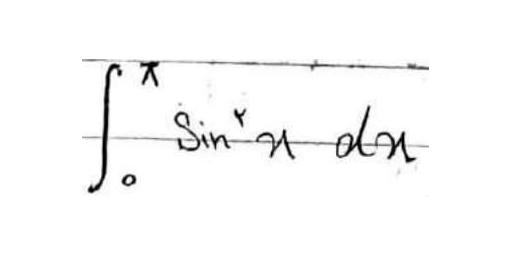 ∫₀^π Sin^۲ x dx